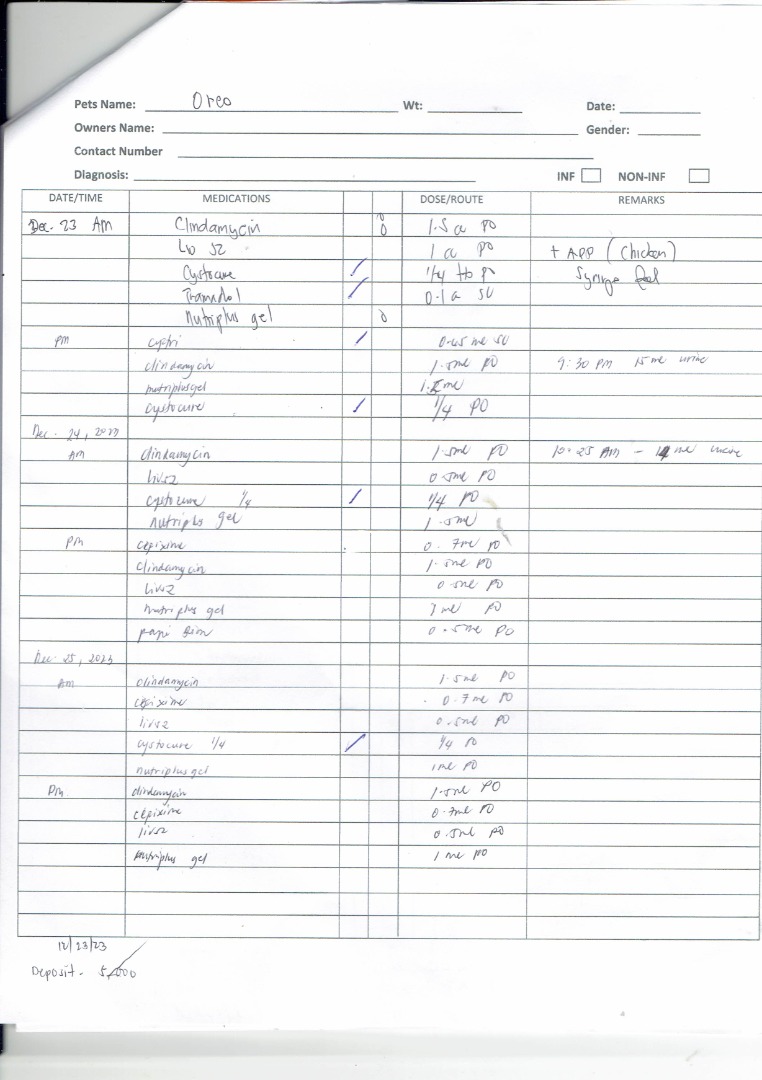 Pets Name: Oreo Wt: Date:
Owners Name: Gender:
Contact Number
Diagnosis: INF NON-INF
DATE/TIME MEDICATIONS DOSE/ROUTE REMARKS
Dec. 23 AM Clindamycin 1.5 a PO
Liv 52 1 a PO + APP (Chicken)
Cystocure / 1/4 PO Syringe
Tramadol / 0.1 a
Nutriplus gel
PM / 0.45 ml
clindamycin 1.5ml PO 9:30 PM 15ml urine
nutriplusgel
cystocure / 1/4 PO
Dec. 24, 2023
AM clindamycin 1.5ml PO 10:25 AM -
liv52 0.5ml PO
cystocure 1/4 / 1/4 PO
nutriplus gel 1.5ml
PM cepixime 0.7ml PO
clindamycin 1.5ml PO
liv52 0.5ml PO
nutriplus gel ml PO
papi 0.5ml PO
Dec. 25, 2023
AM clindamycin 1.5ml PO
cepixime 0.7ml PO
liv52 0.5ml PO
cystocure 1/4 / 1/4 PO
nutriplus gel 1ml PO
PM clindamycin 1.5ml PO
cepixime 0.7ml PO
liv52 0.5ml PO
nutriplus gel 1ml PO
12/23/23
Deposit - 5,000